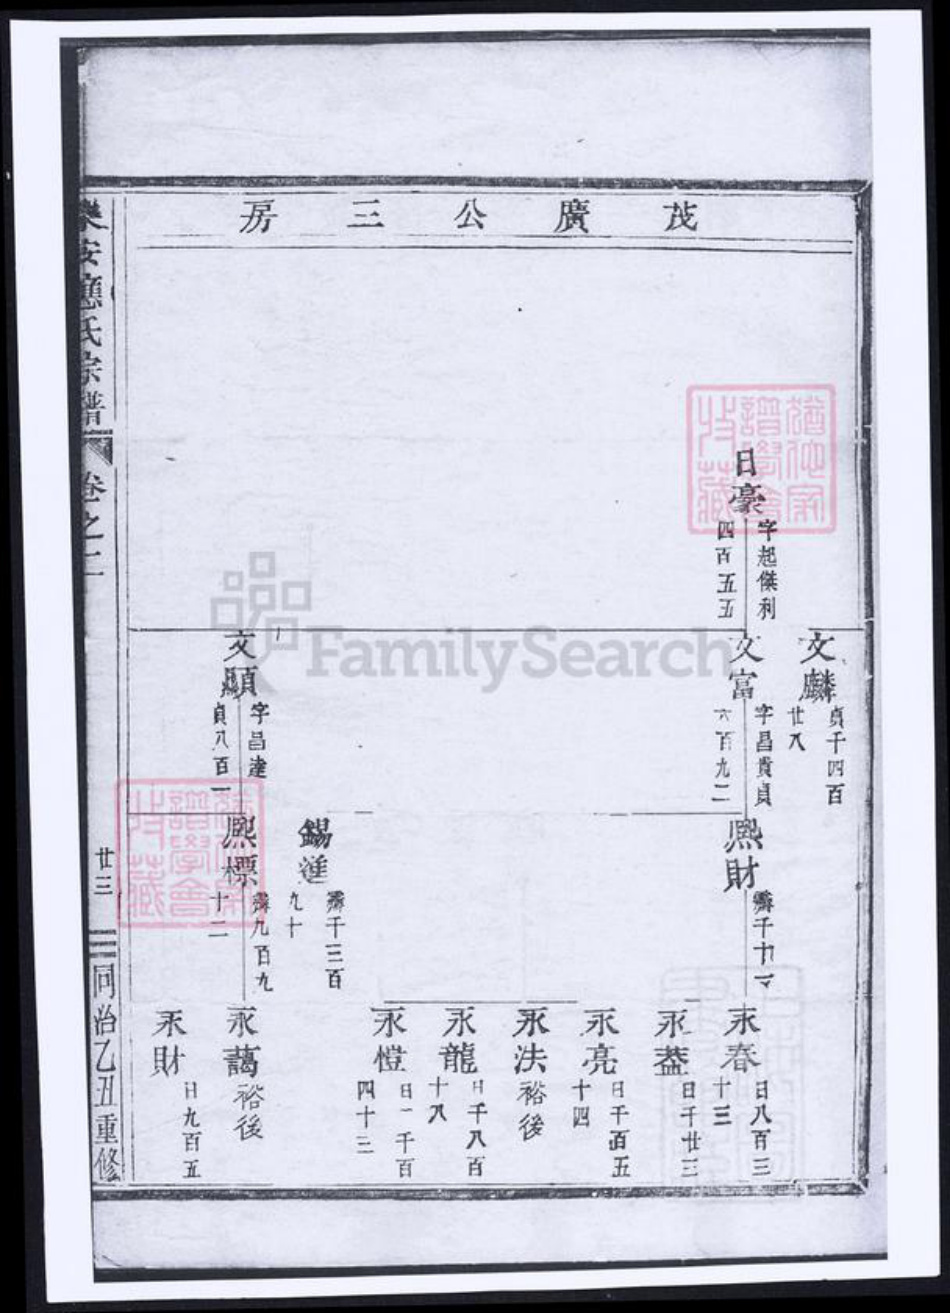 茂廣公三房
日豪
字起傑利
四百五五
文麟
貞千四百
廿八
文富
字昌貴貞
六百九二
文顯
字昌達
貞八百一
熈財
霽千
錫
霽千三百
九十
熈標
霽九百九
十二
永春
日八百三
十三
永益
日千廿三
永亮
日千百五
十四
永法
裕後
永龍
日千八百
十八
永愷
日一千百
四十二
永藹
裕後
永財
日九百五
樂安應氏宗譜
卷之二
廿三
同治乙丑重修
FamilySearch
譜學會
收藏
譜學會
收藏